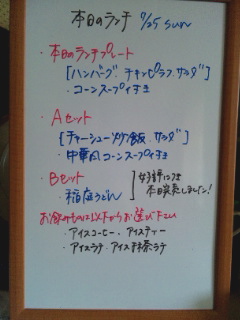 本日のランチ 7/25 sun
・本日のランチプレート
[ハンバーグ. チキンピラフ. サラダ]
・コーンスープ付き
・Aセット
[チャーシュー炒飯. サラダ]
・中華風コーンスープ付き
・Bセット
・稲庭うどん
好評につき
本日完売しました!
お飲みものは以下からお選び下さい
・アイスコーヒー. アイスティー
・アイスラテ. アイス抹茶ラテ